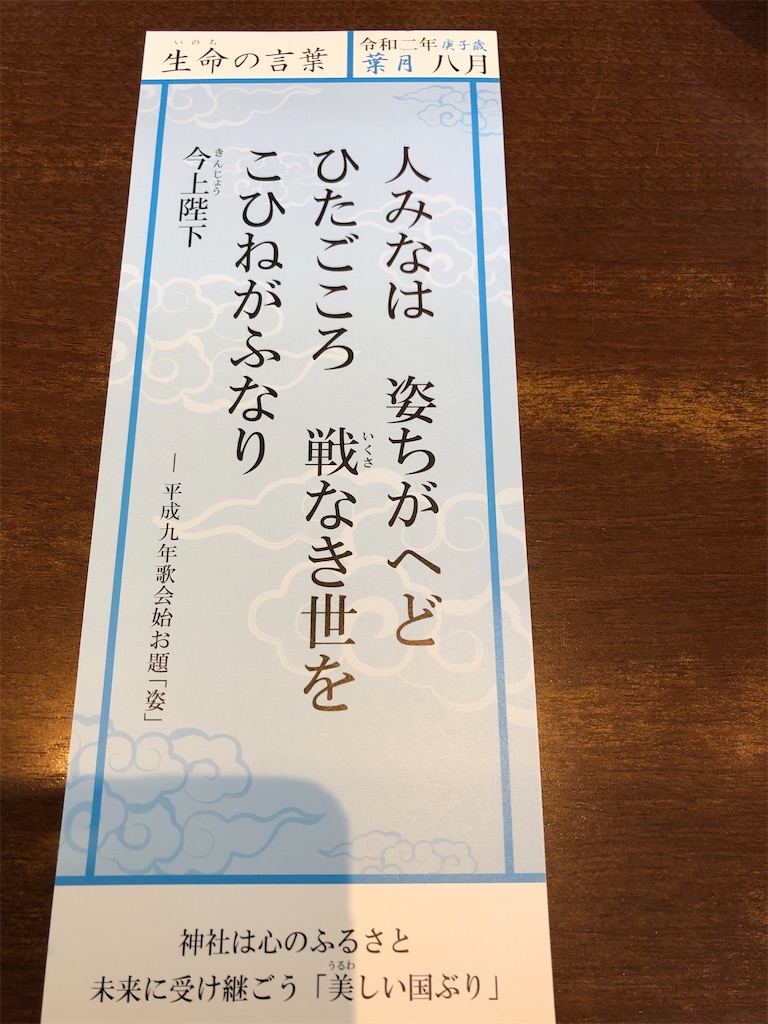 生命の言葉
いのち
令和二年 庚子歳
葉月 八月
人みなは 姿ちがへど
ひたごころ 戦なき世を
いくさ
こひねがふなり
今上陛下
きんじょう
―平成九年歌会始お題「姿」
神社は心のふるさと
未来に受け継ごう「美しい国ぶり」
うるわ